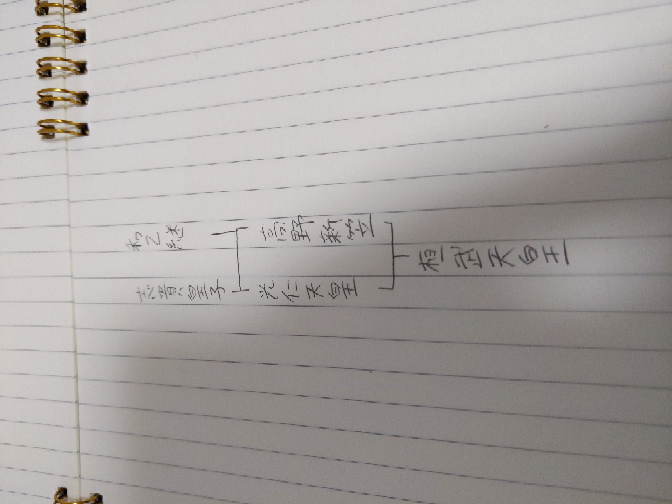 和乙継
高野新笠
志貴皇子
光仁天皇
桓武天皇